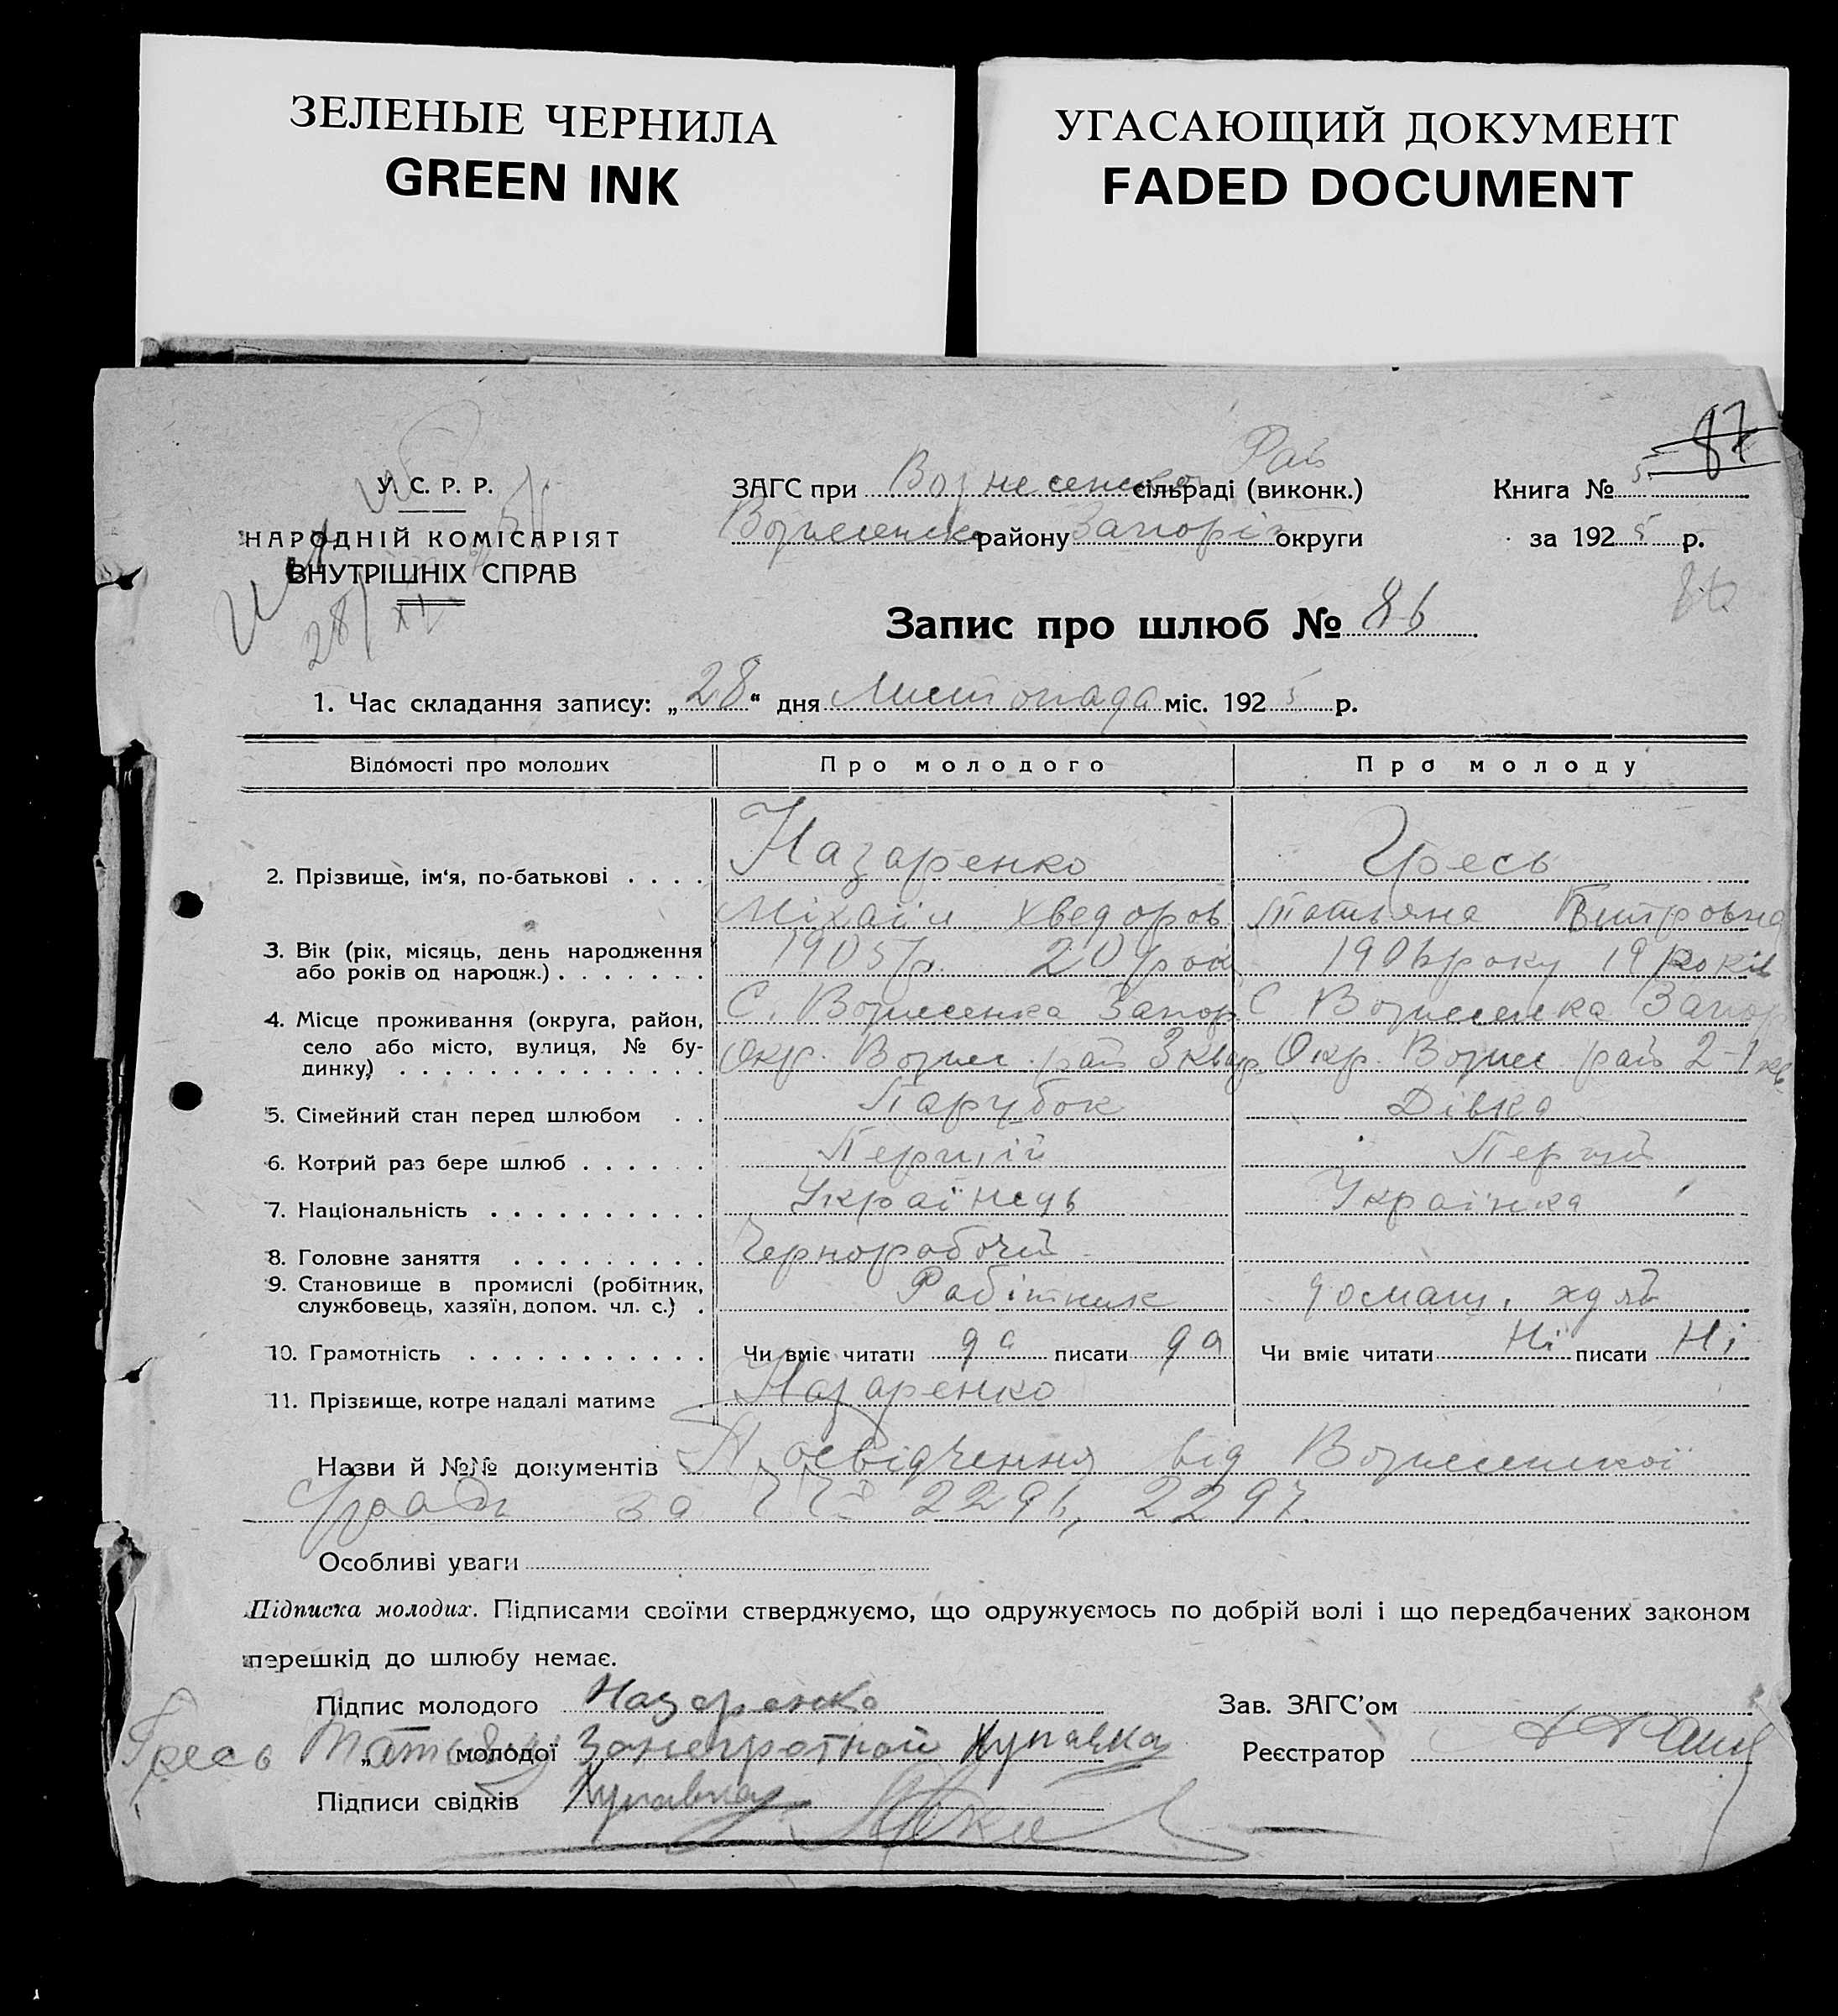 ЗЕЛЕНЫЕ ЧЕРНИЛА
GREEN INK
УГАСАЮЩИЙ ДОКУМЕНТ
FADED DOCUMENT
87
Рай
У. С. Р. Р.
ЗАГС при Вознесенско сільраді (виконк.)
Книга № 5
НАРОДНІЙ КОМІСАРІЯТ
Вознесенск району Запоріз округи
за 1925 р.
ВНУТРІШНІХ СПРАВ
28/XI
86
Запис про шлюб № 86
1. Час складання запису: „28“ дня Листопада міс. 1925 р.
Відомості про молодих Про молодого Про молоду
2. Прізвище, ім‘я, по-батькові . . . . Назаренко Гресь
Міхаіл Хведоров Татьяна
3. Вік (рік, місяць, день народження 1905 р. 20 рок 1906 року 19 років
або років од народж.) . . . . . . .
4. Місце проживання (округа, район, С. Вознесенка Запор С Вознесенка Запор
село або місто, вулиця, № бу- Окр. Вознес. рай 3 квар. Окр. Вознес рай 2-1 кв
динку) . . . . . . . . . . . . . .
5. Сімейний стан перед шлюбом . . Парубок Дівка
6. Котрий раз бере шлюб . . . . . . Перший Перший
7. Національність . . . . . . . . . . Українець Українка
8. Головне заняття . . . . . . . . . Чернорабочий
9. Становище в промислі (робітник, Рабітник домаш.
службовець, хазяїн, допом. чл. с.) .
10. Грамотність . . . . . . . . . . . Чи вміє читати да писати да Чи вміє читати Ні писати Ні
11. Прізвище, котре надалі матиме . Назаренко
Назви й №№ документів Посвідчення від Вознесенскоі
за 2296, 2297.
Особливі уваги
Підписка молодих. Підписами своїми стверджуємо, що одружуємось по добрій волі і що передбачених законом
перешкід до шлюбу немає.
Підпис молодого Назаренко Зав. ЗАГС’ом
Гресь „ молодої Реєстратор
Підписи свідків